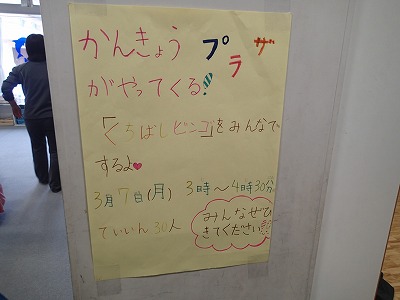 かんきょう プラザ
がやってくる!
「くちばしビンゴ」をみんなで
するよ♥
3月7日(月) 3時～4時30分
ていいん30人
みんなぜひ
きてください